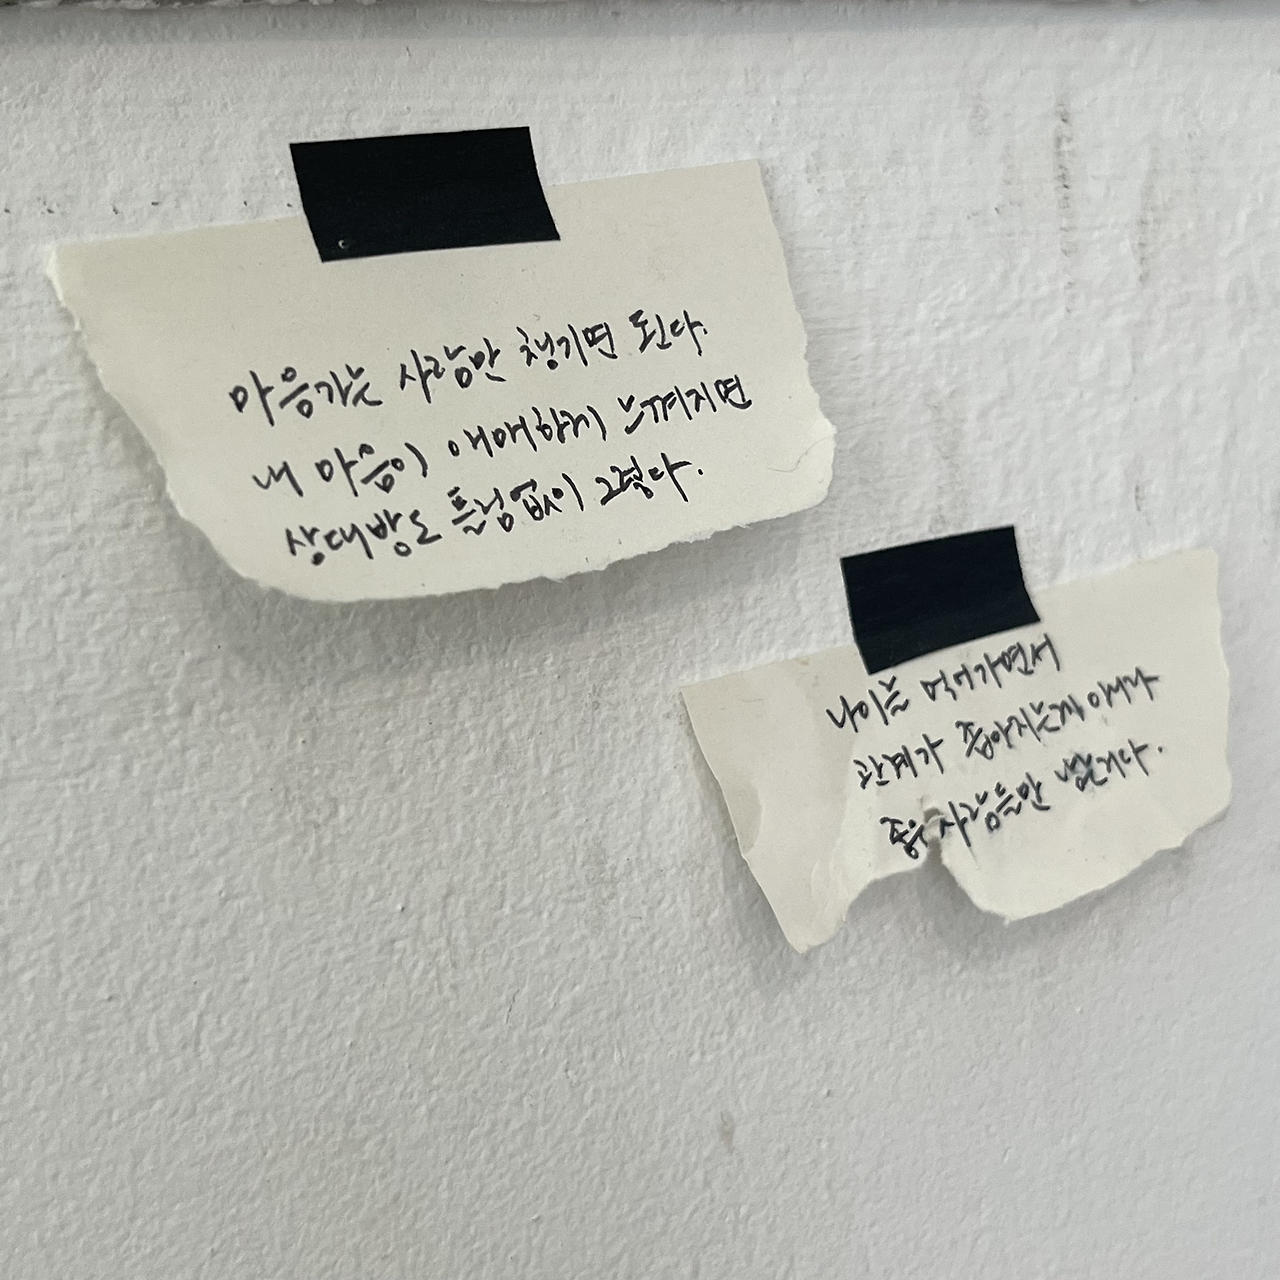 마음가는 사람만 챙기면 된다.
내 마음이 애매하게 느껴지면
상대방도 틀림없이 그렇다.
나이를 먹어가면서
관계가 좁아지는게 아니라
좋은 사람들만 남는거다.